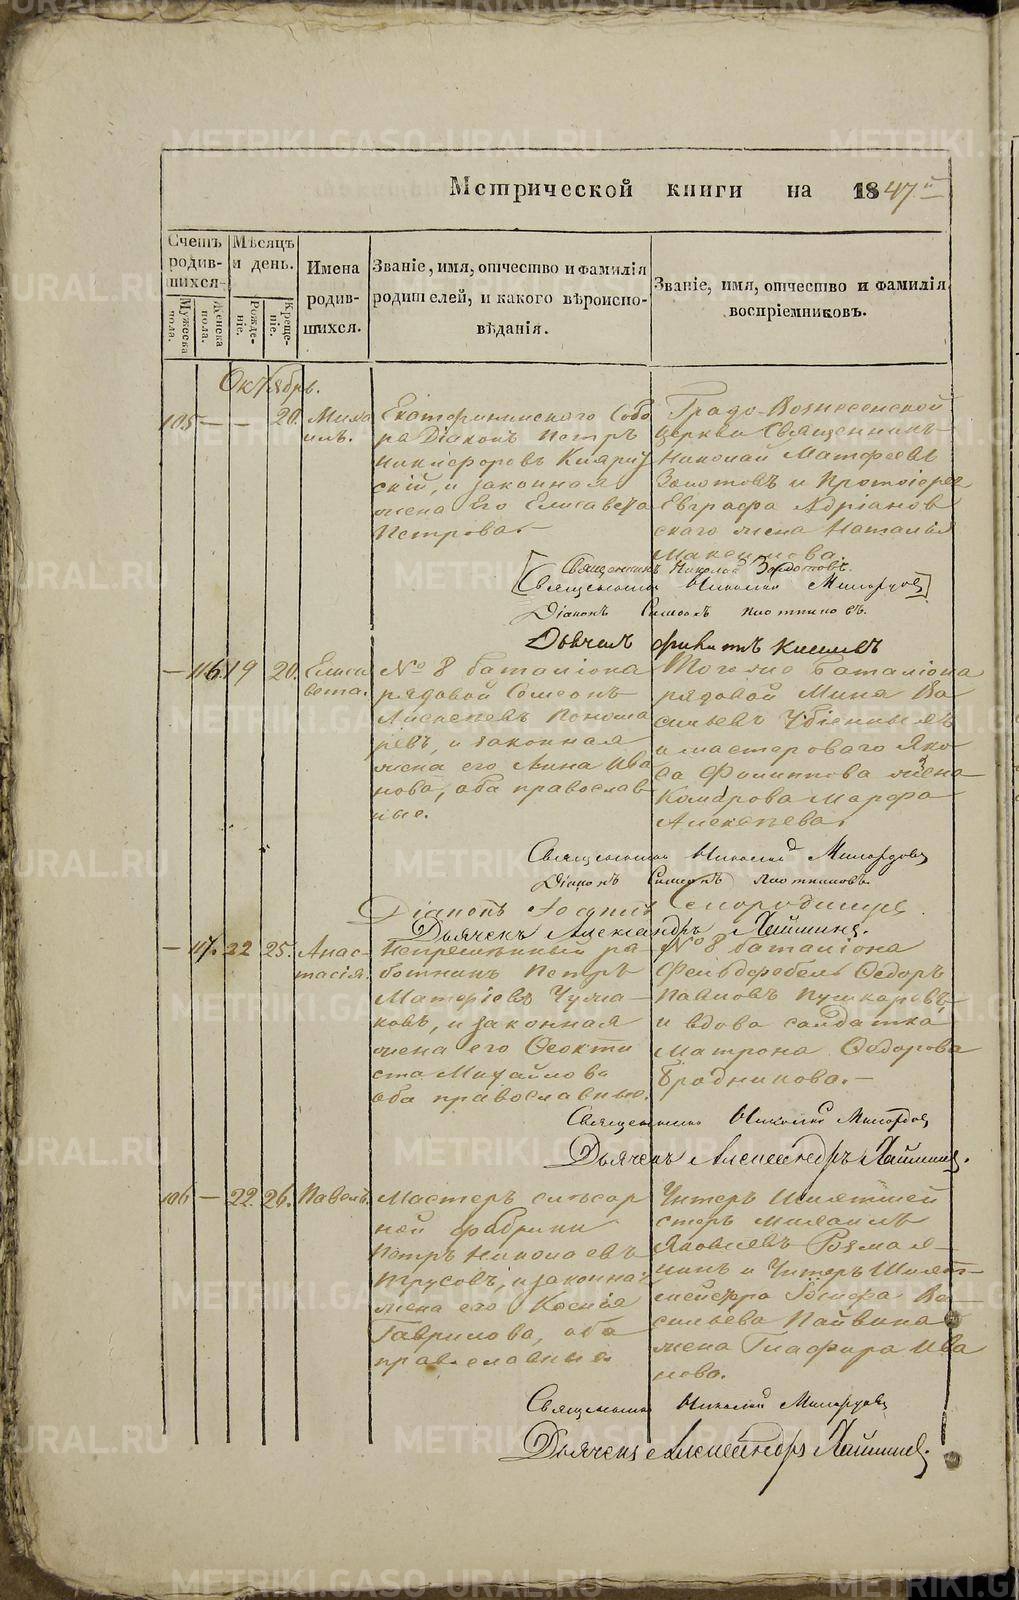 Метрической книги на 1847й
Счетъ родив-шихся.
Мужеска пола.
Женска пола.
Мѣсяцъ и день.
Рожде-ніе.
Креще-ніе.
Имена родив-шихся.
Званіе, имя, отчество и фамилія родителей, и какого вѣроиспо-вѣданія.
Званіе, имя, отчество и фамилія воспріемниковъ.
Октябрь.
105 — — 20. Миха
илъ.
Екатерининскаго Собо
ра Діаконъ Петръ
Никифоровъ
скій, и законная
жена Его Елисавета
Петрова
Градо-Вознесенской
церкви Священникъ
Николай Матфеевъ
Золотовъ и Протоіерея
Евграфа Адріанов
скаго жена Наталья
Максимова.
Священникъ Николай Золотовъ.
Священникъ Николай
Діаконъ Симеонъ Плотниковъ.
— 116 19 20. Елиса
вета.
№ 8 баталіона
рядовой Семеонъ
Алексѣевъ Понома
ревъ, и законная
жена его Анна Ива
нова, оба православ
ные.
Тогоже Баталіона
рядовой Мина Ва
сильевъ
и мастероваго Яко
ва Филиппова жена
Комарова Марфа
Алексѣева.
Священникъ Николай
Діаконъ Симеонъ Плотниковъ.
Діаконъ Іоаннъ Смородинцевъ
Дьячекъ Александръ
— 117. 22 25. Анас-
тасія.
Непремѣнный ра
ботникъ Петръ
Матфіевъ Чума-
ковъ, и законная
жена его Феокти
ста Михайлова
оба православные.
№ 8 баталіона
Фельдфебель Федоръ
Павловъ Пушкаревъ
и вдова солдатка
Матрона Федорова
Бродникова.—
Священникъ Николай
Дьячекъ Александръ
106 — 22. 26. Павелъ.
Мастеръ слѣсар
ной фабрики
Петръ Николаевъ
Трусовъ, и законная
жена его Ксенія
Гаврилова, оба
православные
Унтеръ Шихтмей
стеръ Михаилъ
Яковлевъ
и Унтеръ Шихт-
мейстра Іосифа Ва-
сильева Пайвина
жена Глафира Ива
нова.
Священникъ Николай
Дьячекъ Александръ
METRIKI.GASO-URAL.RU